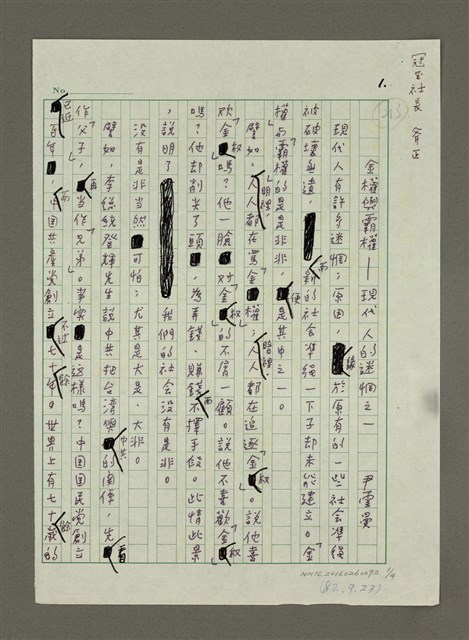 冠雲社長 斧正
1.
No.
金權與霸權——現代人的迷惘之一
尹雪曼
現代人有許多迷惘;原因,緣於原有的一些社會準繩
被破壞無遺,而新的社會準繩一下子却未能建立。「金
權」與「霸權」的是是非非,便是其中之一。
譬如,「明裡」,人人都在罵「金權」,「暗裡」,人人都在追逐「金權」。說他喜
歡「金權」嗎?他一臉對「金權」的不屑一顧。說他不喜歡「金權」
嗎?他却削尖了頭,為弄錢、賺錢而不擇手段。此情此景
,說明了我們的社會沒有是非。
沒有是非當然可怕;尤其是大是、大非。
譬如,李總統登輝先生說中共把台灣與中共的關係,先看
作「父子」,再當作「兄弟」。事實是這樣嗎?中國國民黨創立
已近百年,而中國共產黨創立不過七十餘年。世界上有七十餘歲的
NMTL20160260092 1/4
(82.9.23)